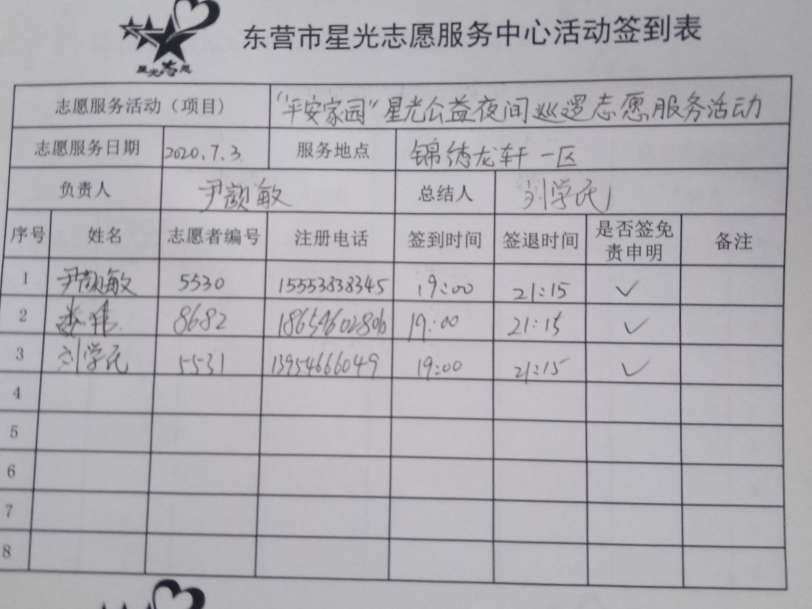 星光志愿
东营市星光志愿服务中心活动签到表
志愿服务活动（项目） "平安家园"星光公益夜间巡逻志愿服务活动
志愿服务日期 2020.7.3 服务地点 锦绣龙轩一区
负责人 尹颜敏 总结人 刘学民
序号 姓名 志愿者编号 注册电话 签到时间 签退时间 是否签免责申明 备注
1 尹颜敏 5530 15553838345 19:00 21:15 ✓
2 8682 18654602806 19:00 21:15 ✓
3 刘学民 5531 13954666049 19:00 21:15 ✓
4
5
6
7
8